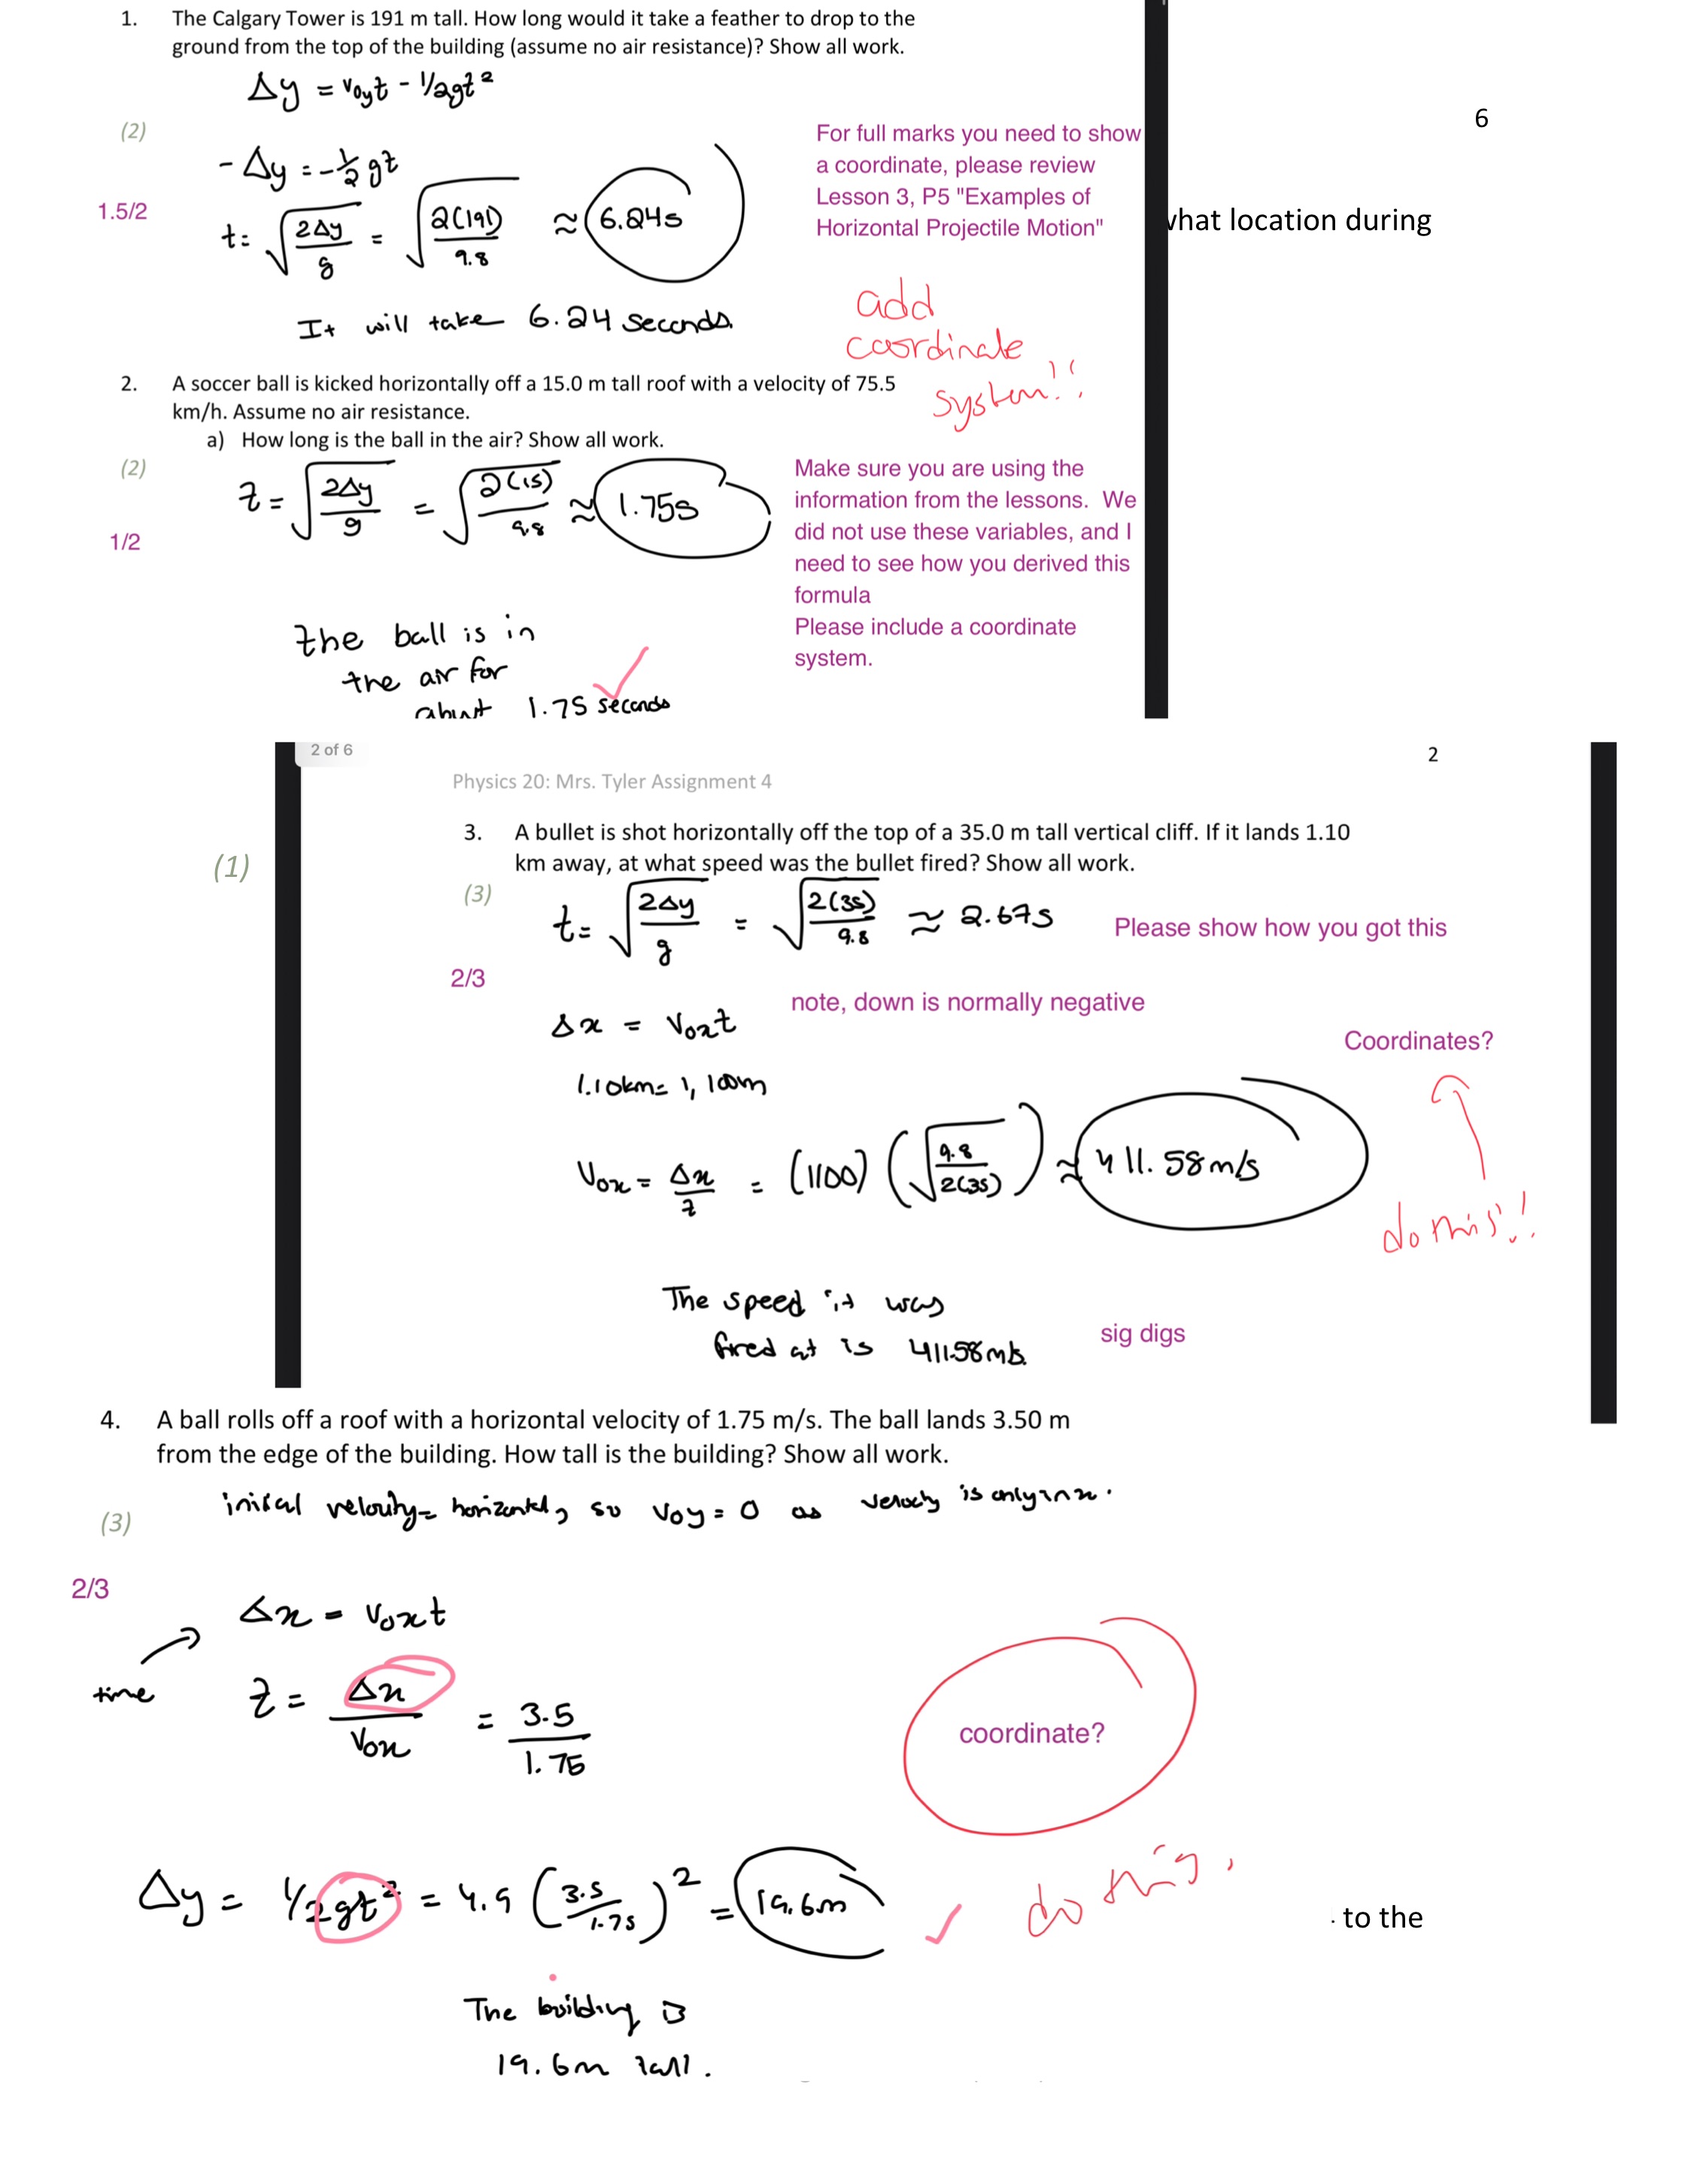 1. The Calgary Tower is 191 m tall. How long would it take a feather to drop to the
ground from the top of the building (assume no air resistance)? Show all work.
Δy = v₀yt - 1/2gt²
6
(2)
For full marks you need to show
a coordinate, please review
Lesson 3, P5 "Examples of
Horizontal Projectile Motion"
- Δy = -½ gt
1.5/2
t = √(2Δy/g) = √(2(191)/9.8) ≈ 6.24s
what location during
It will take 6.24 seconds.
add
coordinate
system!!
2. A soccer ball is kicked horizontally off a 15.0 m tall roof with a velocity of 75.5
km/h. Assume no air resistance.
a) How long is the ball in the air? Show all work.
(2)
t = √(2Δy/g) = √(2(15)/9.8) ≈ 1.75s
1/2
Make sure you are using the
information from the lessons. We
did not use these variables, and I
need to see how you derived this
formula
Please include a coordinate
system.
the ball is in
the air for
about 1.75 seconds
2 of 6
2
Physics 20: Mrs. Tyler Assignment 4
3. A bullet is shot horizontally off the top of a 35.0 m tall vertical cliff. If it lands 1.10
km away, at what speed was the bullet fired? Show all work.
(1)
(3)
t = √(2Δy/g) = √(2(35)/9.8) ≈ 2.67s
Please show how you got this
2/3
note, down is normally negative
Δx = v₀xt
Coordinates?
1.10km = 1,100m
v₀x = Δx/t = (1100) (√(9.8/2(35))) ≈ 411.58m/s
do this!!
The speed it was
fired at is 411.58m/s.
sig digs
4. A ball rolls off a roof with a horizontal velocity of 1.75 m/s. The ball lands 3.50 m
from the edge of the building. How tall is the building? Show all work.
initial velocity = horizontal, so v₀y = 0 as velocity is only in x.
(3)
2/3
Δx = v₀xt
time
t = Δx/v₀x = 3.5/1.75
coordinate?
Δy = 1/2gt² = 4.9 (3.5/1.75)² = 19.6m
do this.
to the
The building is
19.6m tall.